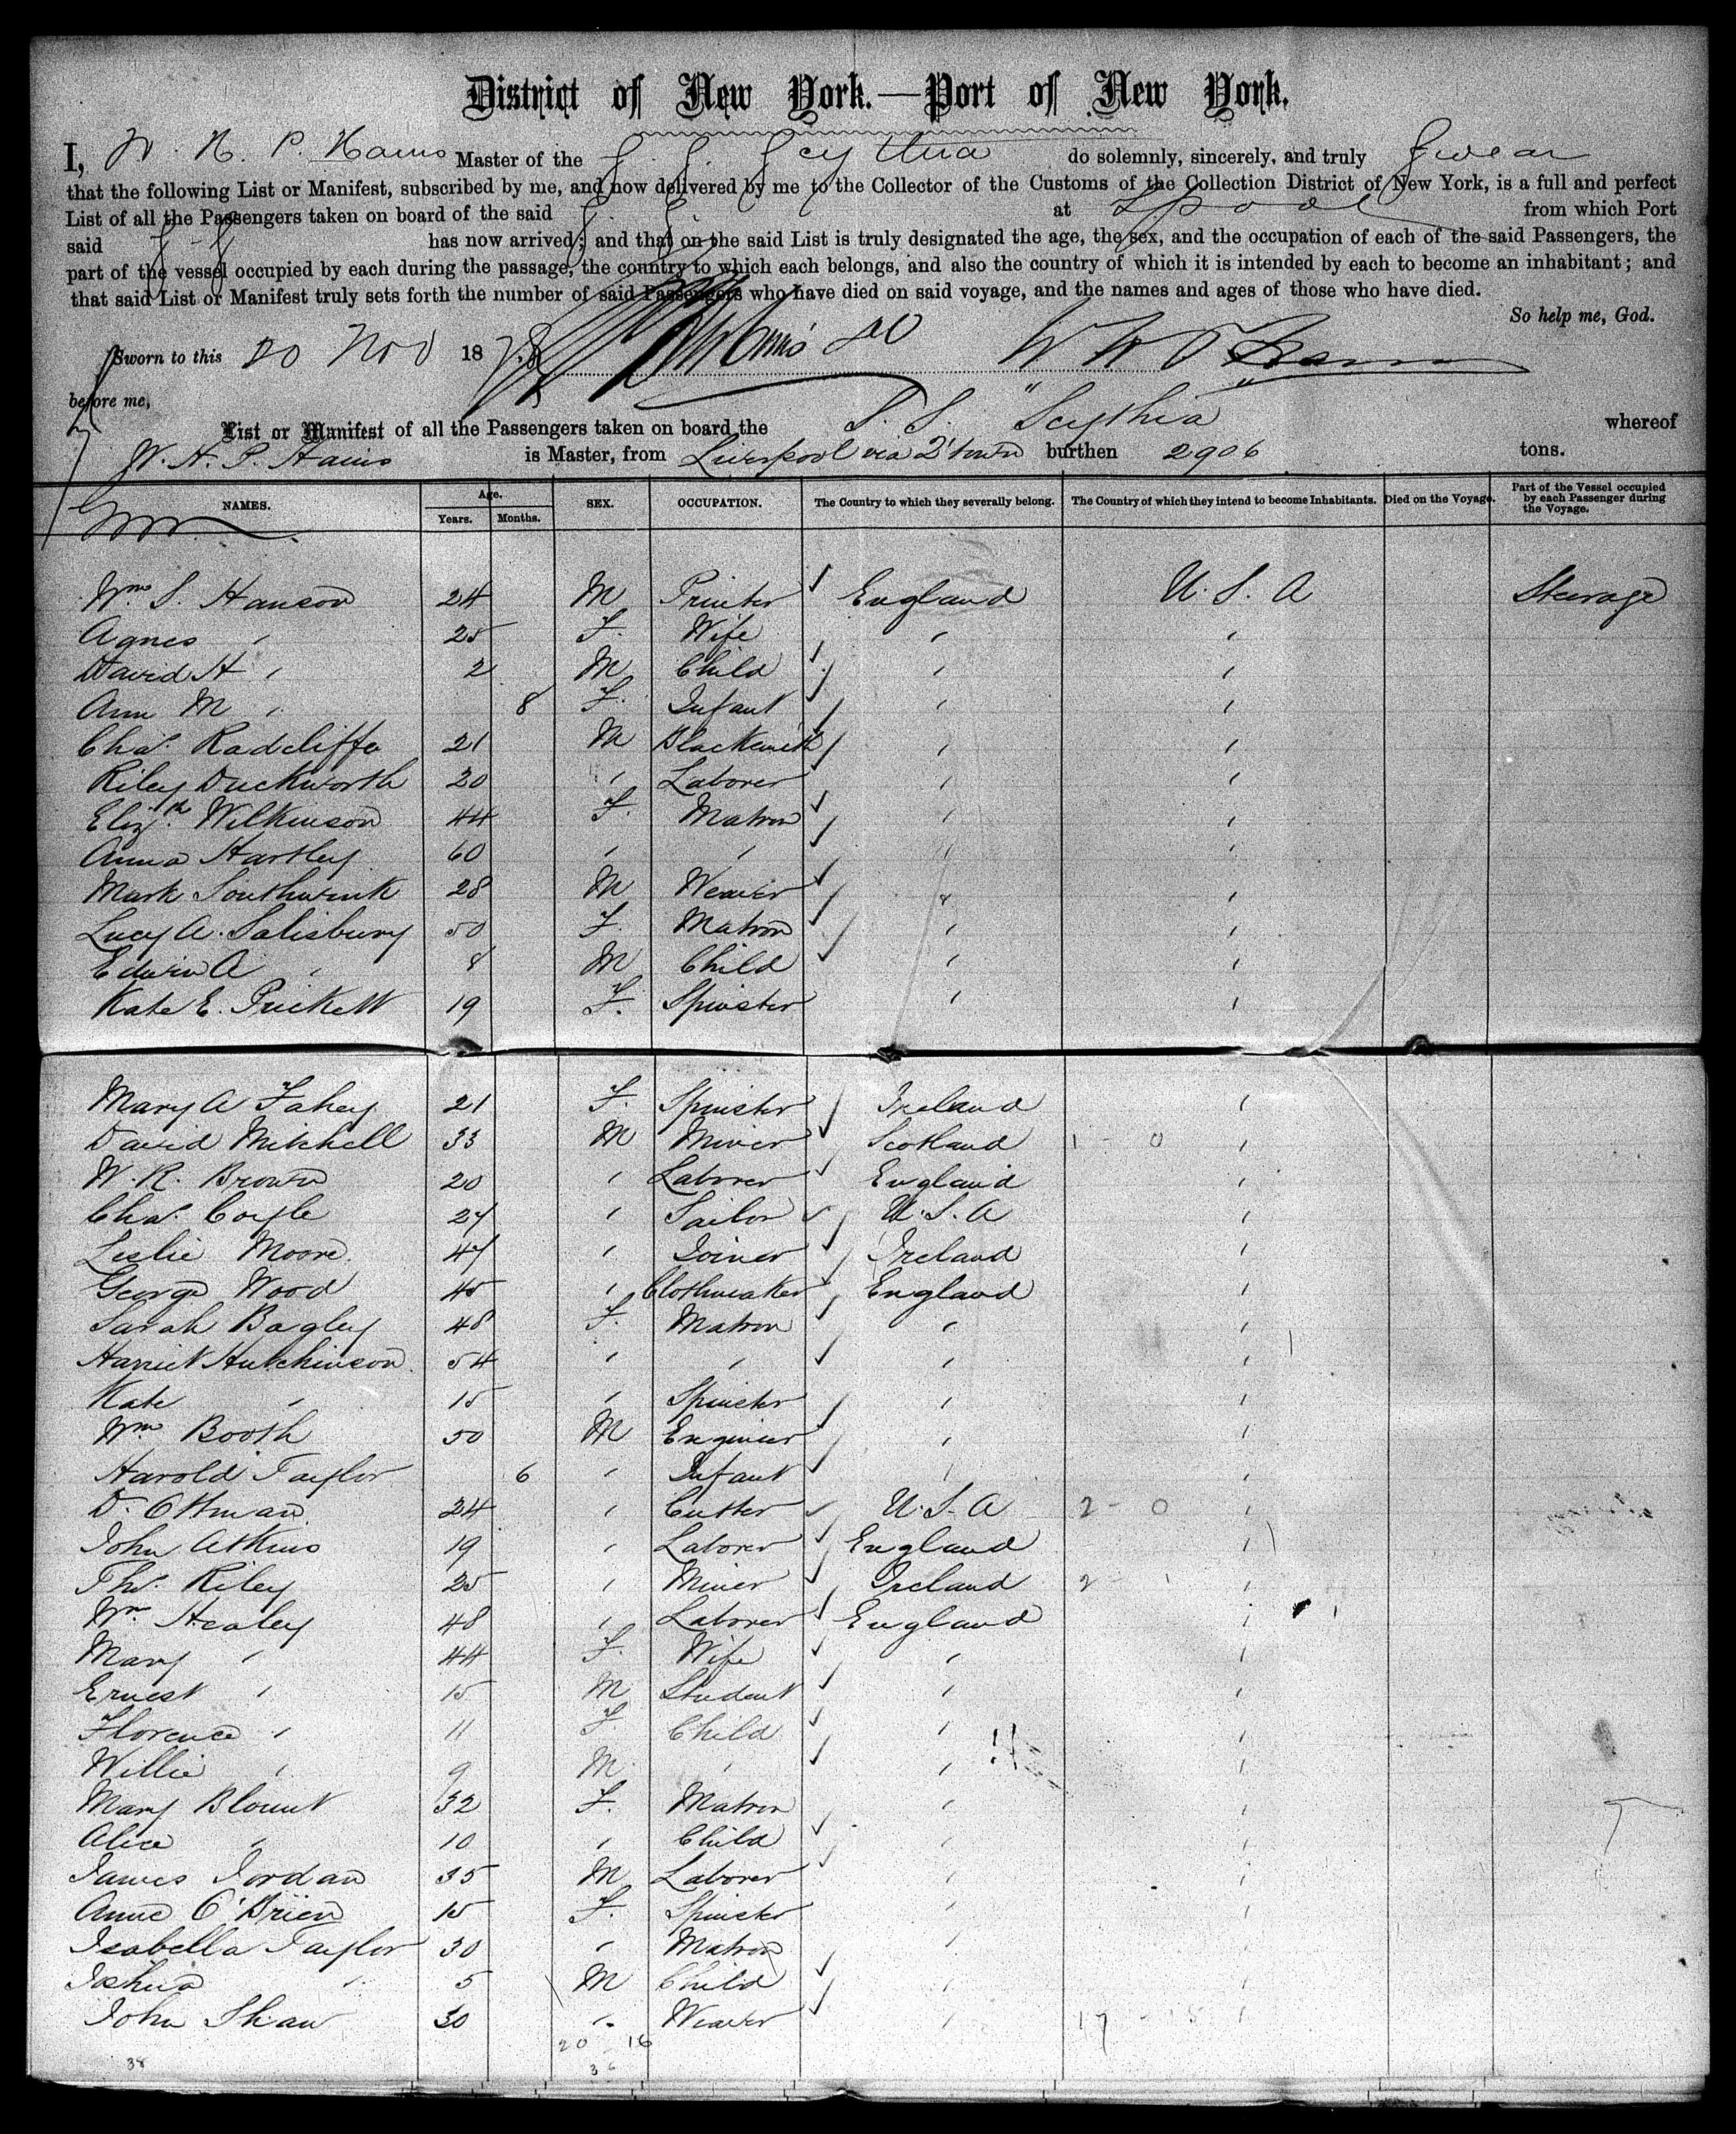 District of New York.—Port of New York.
I, W. H. P. Hains Master of the S. S. Scythia do solemnly, sincerely, and truly Swear
that the following List or Manifest, subscribed by me, and now delivered by me to the Collector of the Customs of the Collection District of New York, is a full and perfect
List of all the Passengers taken on board of the said S. S. at Lpool from which Port
said S. S. has now arrived; and that on the said List is truly designated the age, the sex, and the occupation of each of the said Passengers, the
part of the vessel occupied by each during the passage, the country to which each belongs, and also the country of which it is intended by each to become an inhabitant; and
that said List or Manifest truly sets forth the number of said Passengers who have died on said voyage, and the names and ages of those who have died.
So help me, God.
Sworn to this 20 Nov 1878 W H P Hains
before me,
List or Manifest of all the Passengers taken on board the S. S. "Scythia" whereof
W. H. P. Hains is Master, from Liverpool via Q'town burthen 2906 tons.
NAMES. Age. Years. Months. SEX. OCCUPATION. The Country to which they severally belong. The Country of which they intend to become Inhabitants. Died on the Voyage. Part of the Vessel occupied by each Passenger during the Voyage.
Wm S. Hanson 24 M Printer England U. S. A Steerage
Agnes " 25 F. Wife " "
David H " 2 M Child " "
Ann M " 8 F. Infant " "
Chas. Radcliffe 21 M Blacksmith " "
Riley Duckworth 20 " Laborer " "
Elizth Wilkinson 44 F. Matron " "
Anna Hartley 60 " " " "
Mark Southwink 28 M Weaver " "
Lucy A. Salisbury 50 F. Matron " "
Edwin A " 8 M Child " "
Kate E. Prickett 19 F. Spinster " "
Mary A Fahey 21 F. Spinster Ireland "
David Mitchell 33 M Miner Scotland 1 - 0 "
W. R. Brown 20 " Laborer England "
Chas. Coyle 27 " Sailor U. S. A "
Leslie Moore 47 " Joiner Ireland "
George Wood 45 " Clothmaker England "
Sarah Bagley 48 F. Matron " "
Harriet Hutchinson 54 " " " "
Kate " 15 " Spinster " "
Wm Booth 50 M Engineer " "
Harold Taylor 6 " Infant " "
D. Ottman 24 " Cutter U. S. A 2 - 0 "
John Atkins 19 " Laborer England "
Thos. Riley 25 " Miner Ireland 2 "
Wm Healey 48 " Laborer England "
Mary " 44 F. Wife " "
Ernest " 15 M Student " "
Florence " 11 F. Child " "
Willie " 9 M " " "
Mary Blount 32 F. Matron " "
Alice " 10 " Child " "
James Jordan 35 M Laborer " "
Anne O'Brien 15 F. Spinster " "
Isabella Taylor 30 " Matron " "
Joshua " 5 M Child " "
John Shaw 30 " Weaver " 17 - 15 "
20 16
38 36